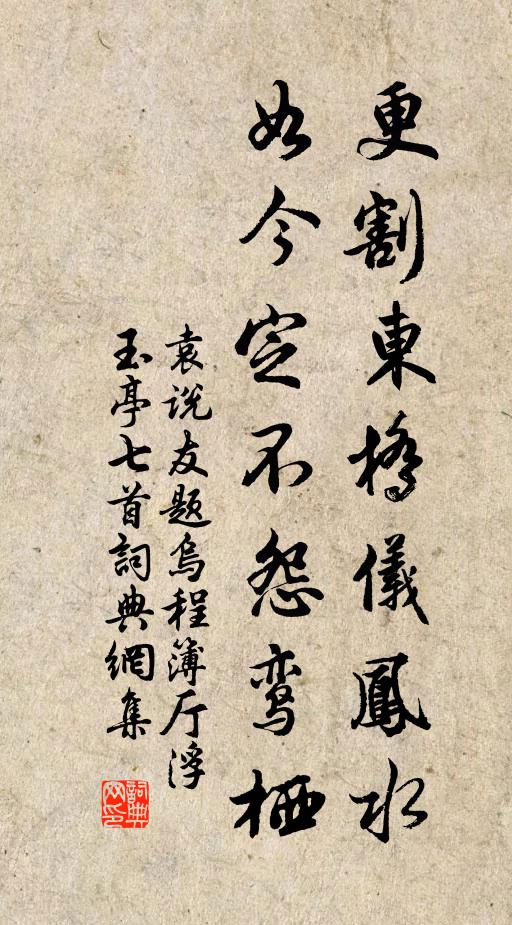 更割東橋儀鳳水
如今定不怨鸾栖
袁说友题烏程簿厅浮
玉亭七首詞典網集
詞典网印